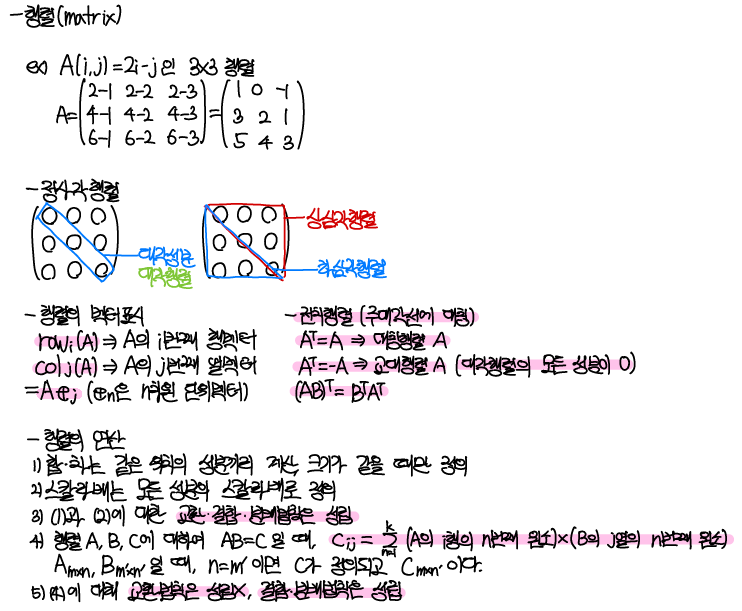 -행렬(matrix)
ex) A(i,j)=2i-j인 3×3 행렬
A=(2-1 2-2 2-3)=(1 0 -1)
(4-1 4-2 4-3) (3 2 1)
(6-1 6-2 6-3) (5 4 3)
-정사각행렬
상삼각행렬
대각성분
대각행렬
하삼각행렬
-행렬의 벡터표시
rowᵢ(A)⇒A의 i번째 행벡터
colⱼ(A)⇒A의 j번째 열벡터
=Aeⱼ (eₙ은 n차원 단위벡터)
-전치행렬 (주대각선에 대칭)
Aᵀ=A ⇒ 대칭행렬 A
Aᵀ=-A ⇒ 교대행렬 A (대각행렬의 모든 성분이 0)
(AB)ᵀ=BᵀAᵀ
-행렬의 연산
1) 합·차는 같은 위치의 성분끼리 계산, 크기가 같을 때만 정의
2) 스칼라배는 모든 성분의 스칼라배로 정의
3) (1)과 (2)에 대한 교환·결합·분배법칙은 성립
4) 행렬 A, B, C에 대하여 AB=C일 때, Cᵢⱼ= k∑n=1 (A의 i행의 n번째 원소)×(B의 j열의 n번째 원소)
Aₘₓₙ, Bₘ'ₓₙ' 일 때, n=m'이면 C가 정의되고 Cₘₓₙ'이다.
5) (4)에 대해 교환법칙은 성립X, 결합·분배법칙은 성립